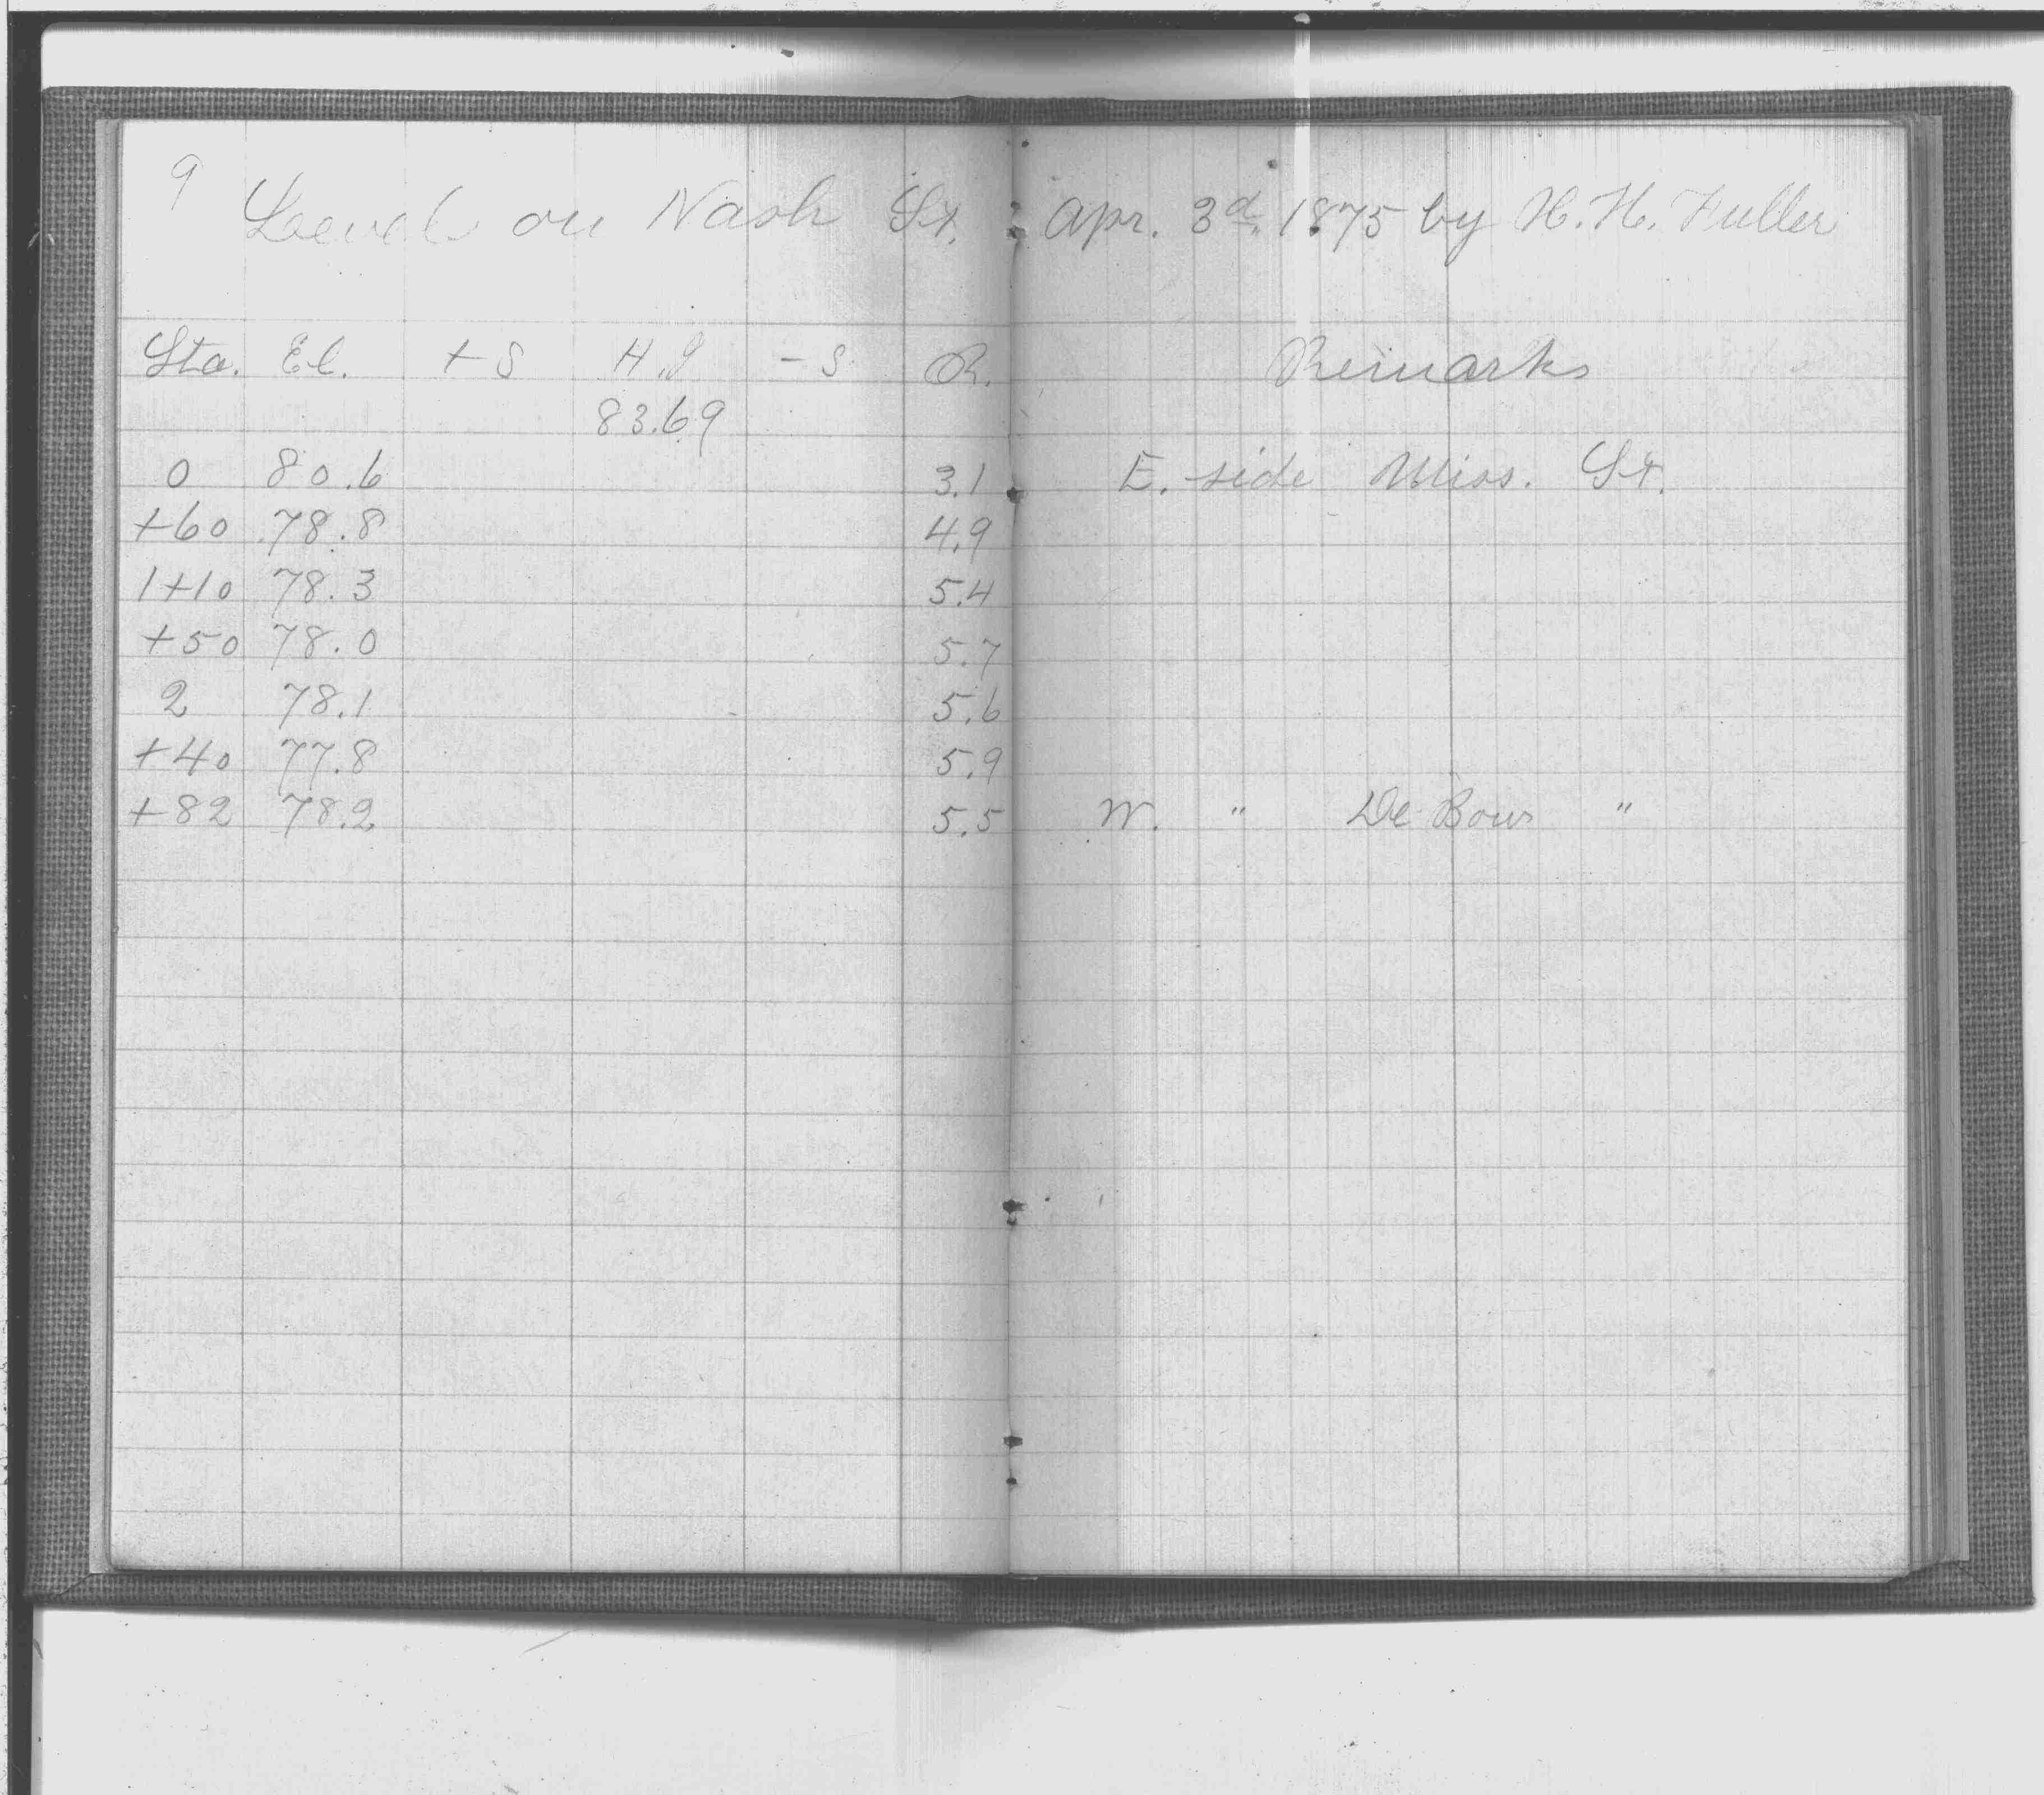 9
Levels on Nash St. Apr. 3d. 1875 by H. H. Fuller
Sta. El. + S H.I - S. R. Remarks
83.69
0 80.6 3.1 E. side Miss. St.
+60 78.8 4.9
1+10 78.3 5.4
+50 78.0 5.7
2 78.1 5.6
+40 77.8 5.9
+82 78.2 5.5 W. " De Bows "